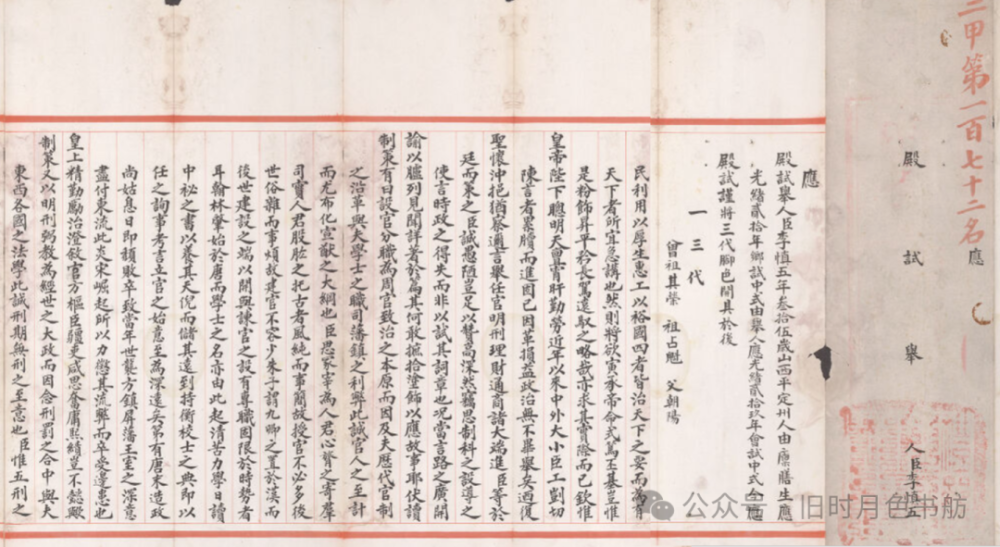 二甲第一百七十二名
應
殿試舉人臣李慎五
應
殿試舉人臣李慎五年叁拾伍歲山西平定州人由廩膳生應
光緒貳拾年鄉試中式由舉人應光緒貳拾玖年會試中式今應
殿試謹將三代腳色開具於後
一三代
曾祖其榮 祖占魁 父朝陽
民利用以厚生惠工以裕國四者皆治天下之要而為有
天下者所宜急講也然則將欲寅承帝命式篤丕基豈惟
是粉飾昇平矜長駕遠馭之略哉亦求其實際而已欽惟
皇帝陛下聰明天亶宵旰勤勞近年以來中外大小臣工剴切
陳言者累牘而進固已因革損益政治無不畢舉矣迺復
聖懷沖挹猶察邇言舉任官明刑理財通商諸大端進臣等於
廷而策之臣誠愚陋豈足以贊高深然竊思制科之設導之
使言時政之得失而非以試其詞章也況當言路之廣開
諭以臚列見聞詳著於篇其何敢摭拾塗飾以應故事耶伏讀
制策有曰設官分職為周官致治之本原而因及夫歷代官制
之沿革與夫學士之職司藩鎮之利弊此誠官人之至計
而允布化宣猷之大綱也臣思冢宰為人君心膂之寄羣
司實人君股肱之托古者風純而事簡故授官不必多後
世俗雜而事煩故建官不容少朱子謂九卿之置於漢而
後世建設之端以開與諫官之設有專職固限於時勢者
耳翰林肇始於唐而學士之名亦由此起清苦力學日讀
中祕之書以養其天倪而儲其遠到持衡校士之典即以
任之詢事考言立官之始意至為深遠矣第有唐末造政
尚姑息日即隳敗卒致當年世襲方鎮屏藩王室之深意
盡付東流此炎宋崛起所以力懲其流弊而卒受邊患也
皇上精勤勵治澄敘官方樞臣疆吏咸思奮庸熙績豈不懿歟
制策又以明刑弼教為經世之大政而因念刑罰之合中與夫
東西各國之法學此誠刑期無刑之至意也臣惟五刑之
公众号 旧时月色书舫